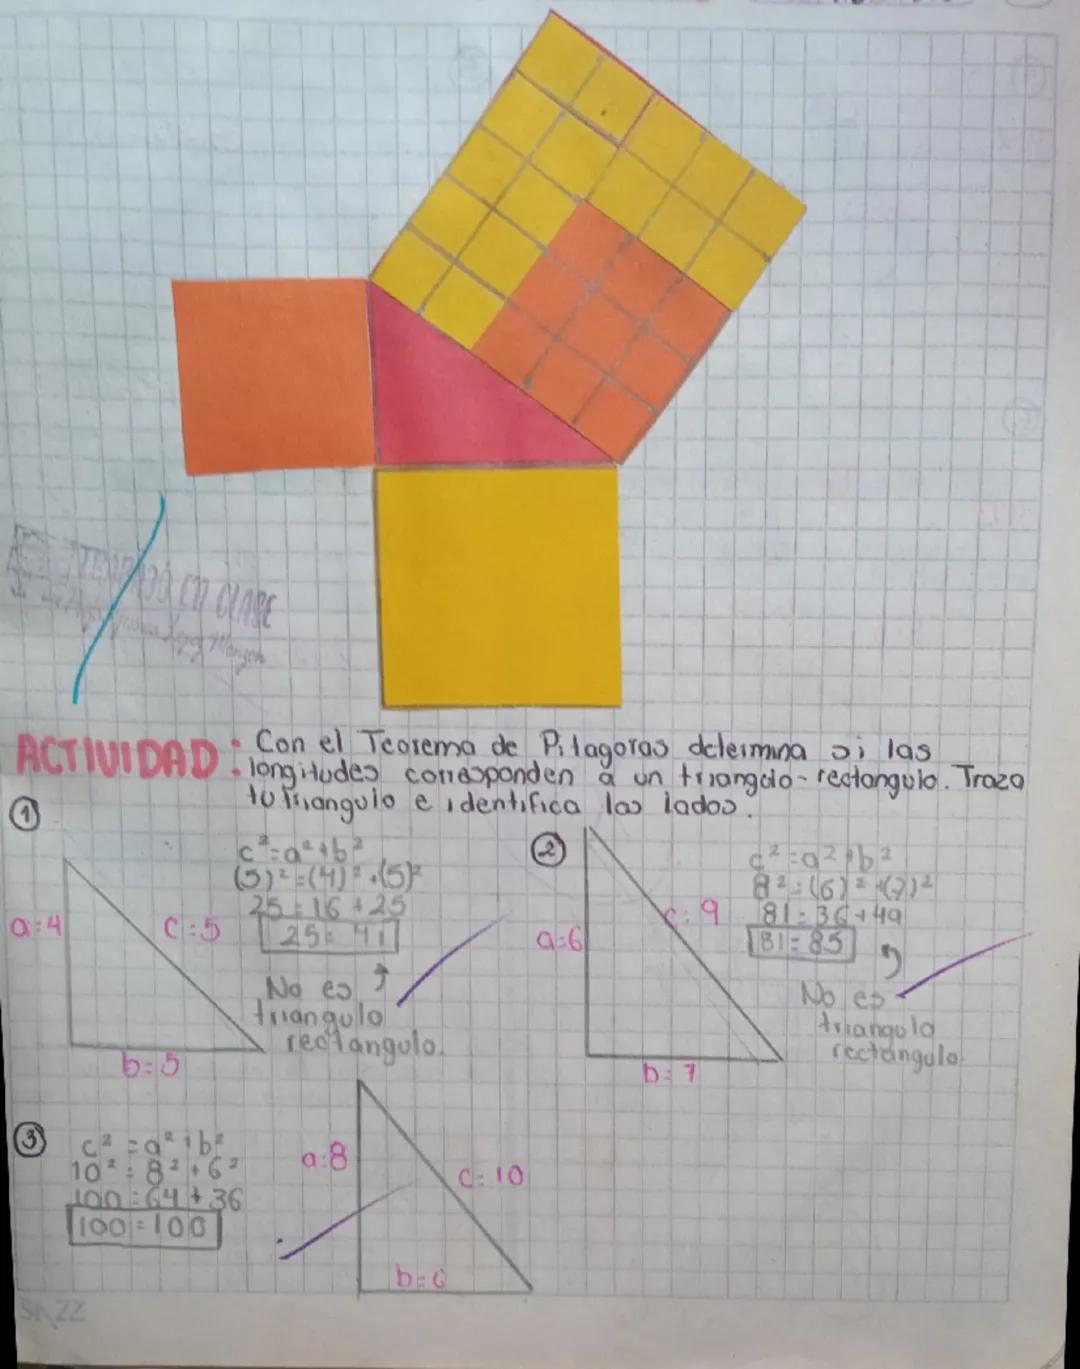 ACTIVIDAD: Con el Teorema de Pitagoras determina si las
longitudes corresponden a un triangulo-rectangulo. Traza
tu triangulo e identifica los lados.
①
a=4
c=5
b=5
c²=a²+b²
(5)²=(4)²+(5)²
25=16+25
25=41
No es
triangulo
rectangulo.
②
a=6
c=9
b=7
c²=a²+b²
8²=(6)²+(7)²
81=36+49
81=85
No es
triangulo
rectangulo.
③
c²=a²+b²
10²=8²+6²
100=64+36
100=100
a=8
c=10
b=6
EN CLASE